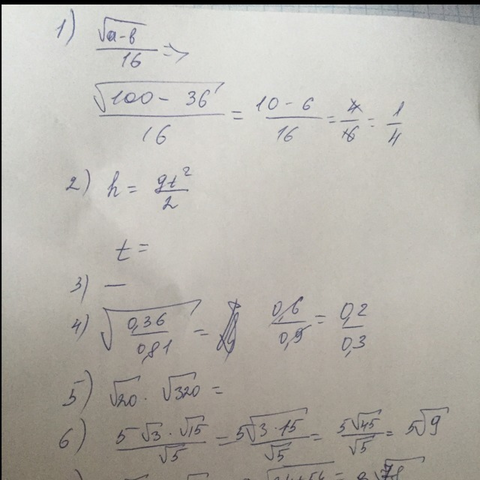 1) √(a-b)/16 =>
√(100 - 36)/16 = (10 - 6)/16 = 4/16 = 1/4
2) h = gt²/2
t =
3) —
4) √(0,36/0,81) = 0,6/0,9 = 0,2/0,3
5) √20 · √320 =
6) 5√3 · √15/√5 = 5√(3·15)/√5 = 5√45/√5 = 5√9